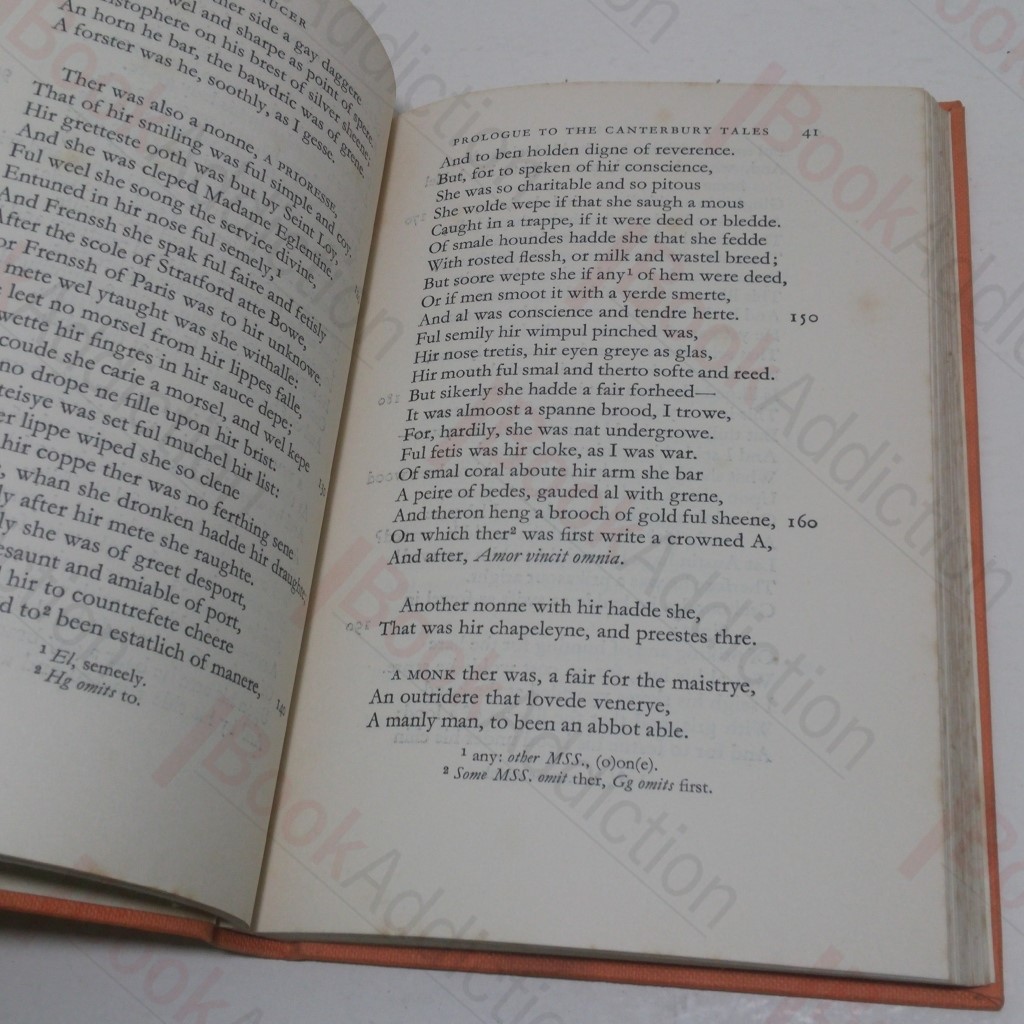 UCER
her side a gay daggere
wel and sharpe as point of spere.
istophere on his brest of silver sheene.
An horn he bar, the bawdric was of grene.
A forster was he, soothly, as I gesse.
Ther was also a nonne, A PRIORESSE,
That of hir smiling was ful simple and coy.
Hir gretteste ooth was but by Seint Loy,
And she was cleped Madame Eglentine.
Ful weel she soong the service divine,
Entuned in hir nose ful semely,¹
And Frenssh she spak ful faire and fetisly
After the scole of Stratford atte Bowe,
or Frenssh of Paris was to hir unknowe.
mete wel ytaught was she withalle:
leet no morsel from hir lippes falle,
wette hir fingres in hir sauce depe;
coude she carie a morsel, and wel kepe
no drope ne fille upon hir brist.
teisye was set ful muchel hir list:
er lippe wiped she so clene
hir coppe ther was no ferthing sene
whan she dronken hadde hir draughte.
ly after hir mete she raughte.
ly she was of greet desport,
esaunt and amiable of port,
hir to countrefete cheere
d to² been estatlich of manere,
130
140
¹ El, semeely.
² Hg omits to.
PROLOGUE TO THE CANTERBURY TALES 41
And to ben holden digne of reverence.
But, for to speken of hir conscience,
She was so charitable and so pitous
She wolde wepe if that she saugh a mous
Caught in a trappe, if it were deed or bledde.
Of smale houndes hadde she that she fedde
With rosted flessh, or milk and wastel breed;
But soore wepte she if any¹ of hem were deed,
Or if men smoot it with a yerde smerte,
And al was conscience and tendre herte. 150
Ful semily hir wimpul pinched was,
Hir nose tretis, hir eyen greye as glas,
Hir mouth ful smal and therto softe and reed.
But sikerly she hadde a fair forheed—
It was almoost a spanne brood, I trowe,
For, hardily, she was nat undergrowe.
Ful fetis was hir cloke, as I was war.
Of smal coral aboute hir arm she bar
A peire of bedes, gauded al with grene,
And theron heng a brooch of gold ful sheene, 160
On which ther² was first write a crowned A,
And after, Amor vincit omnia.
Another nonne with hir hadde she,
That was hir chapeleyne, and preestes thre.
A MONK ther was, a fair for the maistrye,
An outridere that lovede venerye,
A manly man, to been an abbot able.
¹ any: other MSS., (o)on(e).
² Some MSS. omit ther, Gg omits first.
BookAddiction